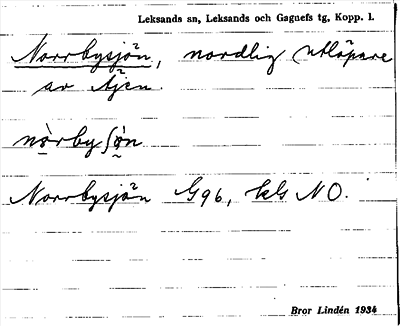 Leksands sn, Leksands och Gagnefs tg, Kopp. l.
Norrbysjön, nordlig utlöpare
av Åjen.
nòrby∫ǿn
Norrbysjön G96, kls NO.
Bror Lindén 1934